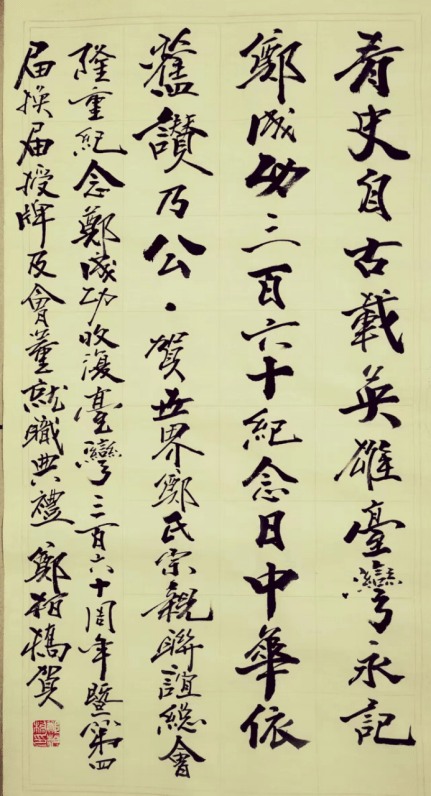 青史自古載英雄臺灣永記
鄭成功三百六十紀念日中華依
舊讚乃公．賀世界鄭氏宗親聯誼總會
隆重紀念鄭成功收復臺灣三百六十周年暨第四
屆換屆授牌及會董就職典禮 鄭柏橋賀